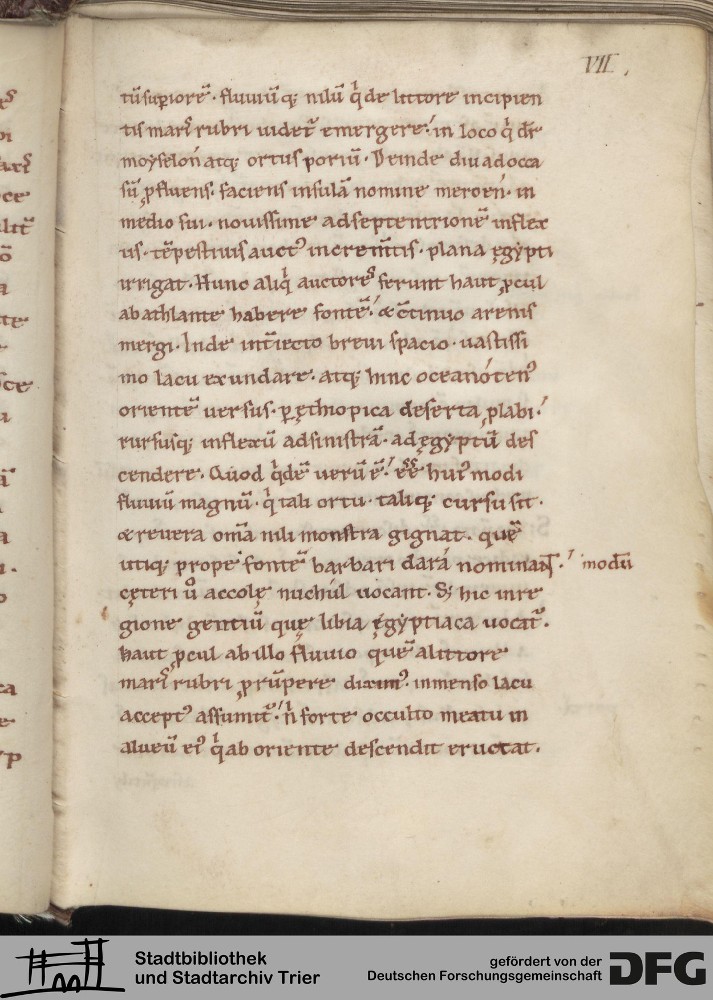 VII.
tũ suꝑiorẽ · fluuiũq; nilũ q̇ de littore incipien
tis marꝭ rubri uidet᷑ emergere · in loco q̇ dr̃
moyselon atq; ortus poriũ · Deinde diu adocca
sũ ꝓfluens · faciens insulã nomine meroen · in
medio sui · nouissime adseptentrionẽ inflex
us · tẽpestiuis auctꝰ increm̃tis · plana ęgypti
irrigat · Hunc aliq̇ auctores ferunt haut ꝓcul
abathlante habere fontẽ · & c̃tinuo arenis
mergi · Inde int̃iecto breui spacio · uastissi
mo lacu exundare · atq; hinc oceanotenꝰ
orientẽ uersus · ꝑ ęthiopica deserta ꝓlabi ·
rursusq; inflexũ adsinistrã · ad ęgyptũ des
cendere · Quod q̇dẽ uerũ ẽ · eẽ huiꝰmodi
fluuiũ magnũ · q̇ tali ortu · taliq; cursu sit ·
& reuera om̃a nili monstra gignat · quẽ
utiq; prope fontẽ barbari dara nominant᷑ · modũ
cęteri ũ accolę nuchul uocant · S; hic inre
gione gentiũ quę libia ęgyptiaca uocat᷑ ·
haut ꝓcul ab illo fluuio quẽ alittore
marꝭ rubri ꝓrũpere diximꝰ · inmenso lacu
acceptꝰ assumit᷑ · ñ forte occulto meatu in
alueũ eiꝰ q̇ ab oriente descendit eructat ·
Stadtbibliothek
und Stadtarchiv Trier
gefördert von der
Deutschen Forschungsgemeinschaft
DFG